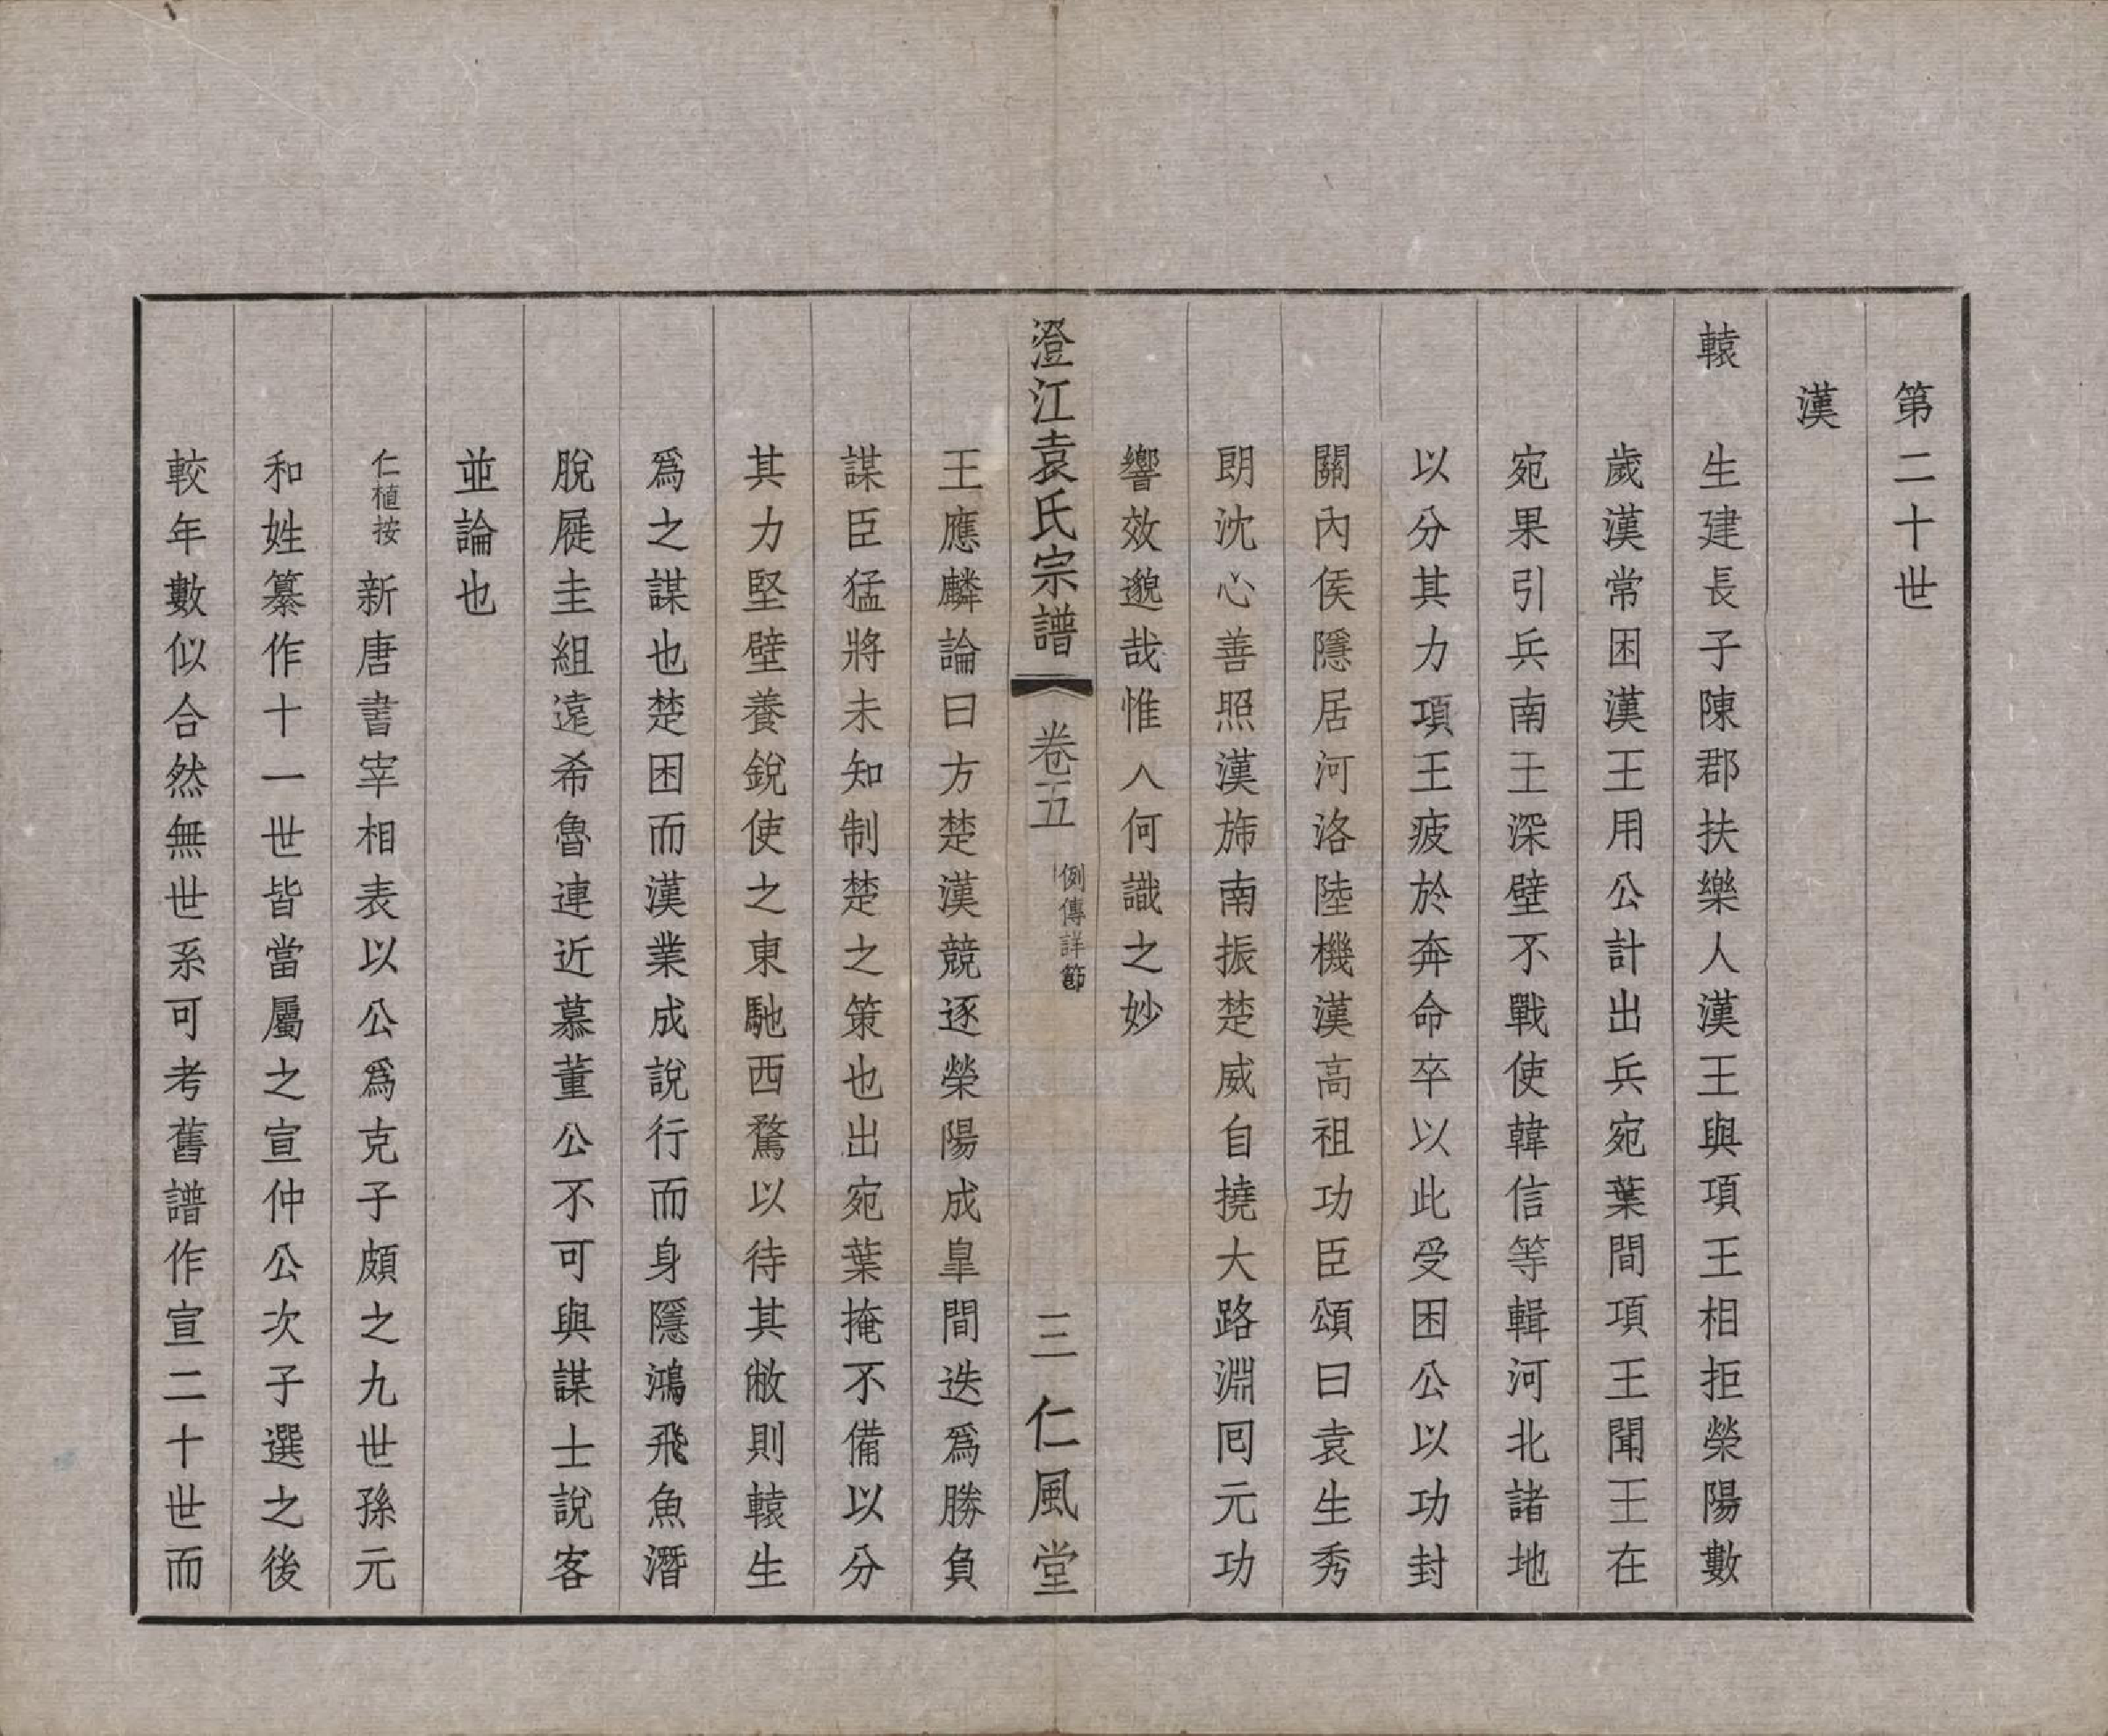 第二十世
漢
轅 生建長子陳郡扶樂人漢王與項王相拒榮陽數
歲漢常困漢王用公計出兵宛葉間項王聞王在
宛果引兵南王深壁不戰使韓信等輯河北諸地
以分其力項王疲於奔命卒以此受困公以功封
關內侯隱居河洛陸機漢高祖功臣頌曰袁生秀
朗沈心善照漢斾南振楚威自撓大路淵回元功
響效邈哉惟人何識之妙
澄江袁氏宗譜 卷五 例傳詳節 三 仁風堂
王應麟論曰方楚漢競逐榮陽成皐間迭爲勝負
謀臣猛將未知制楚之策也出宛葉掩不備以分
其力堅壁養銳使之東馳西騖以待其敝則轅生
爲之謀也楚困而漢業成說行而身隱鴻飛魚潛
脫屣圭組遠希魯連近慕董公不可與謀士說客
並論也
仁植按 新唐書宰相表以公爲克子頗之九世孫元
和姓纂作十一世皆當屬之宣仲公次子選之後
較年數似合然無世系可考舊譜作宣二十世而